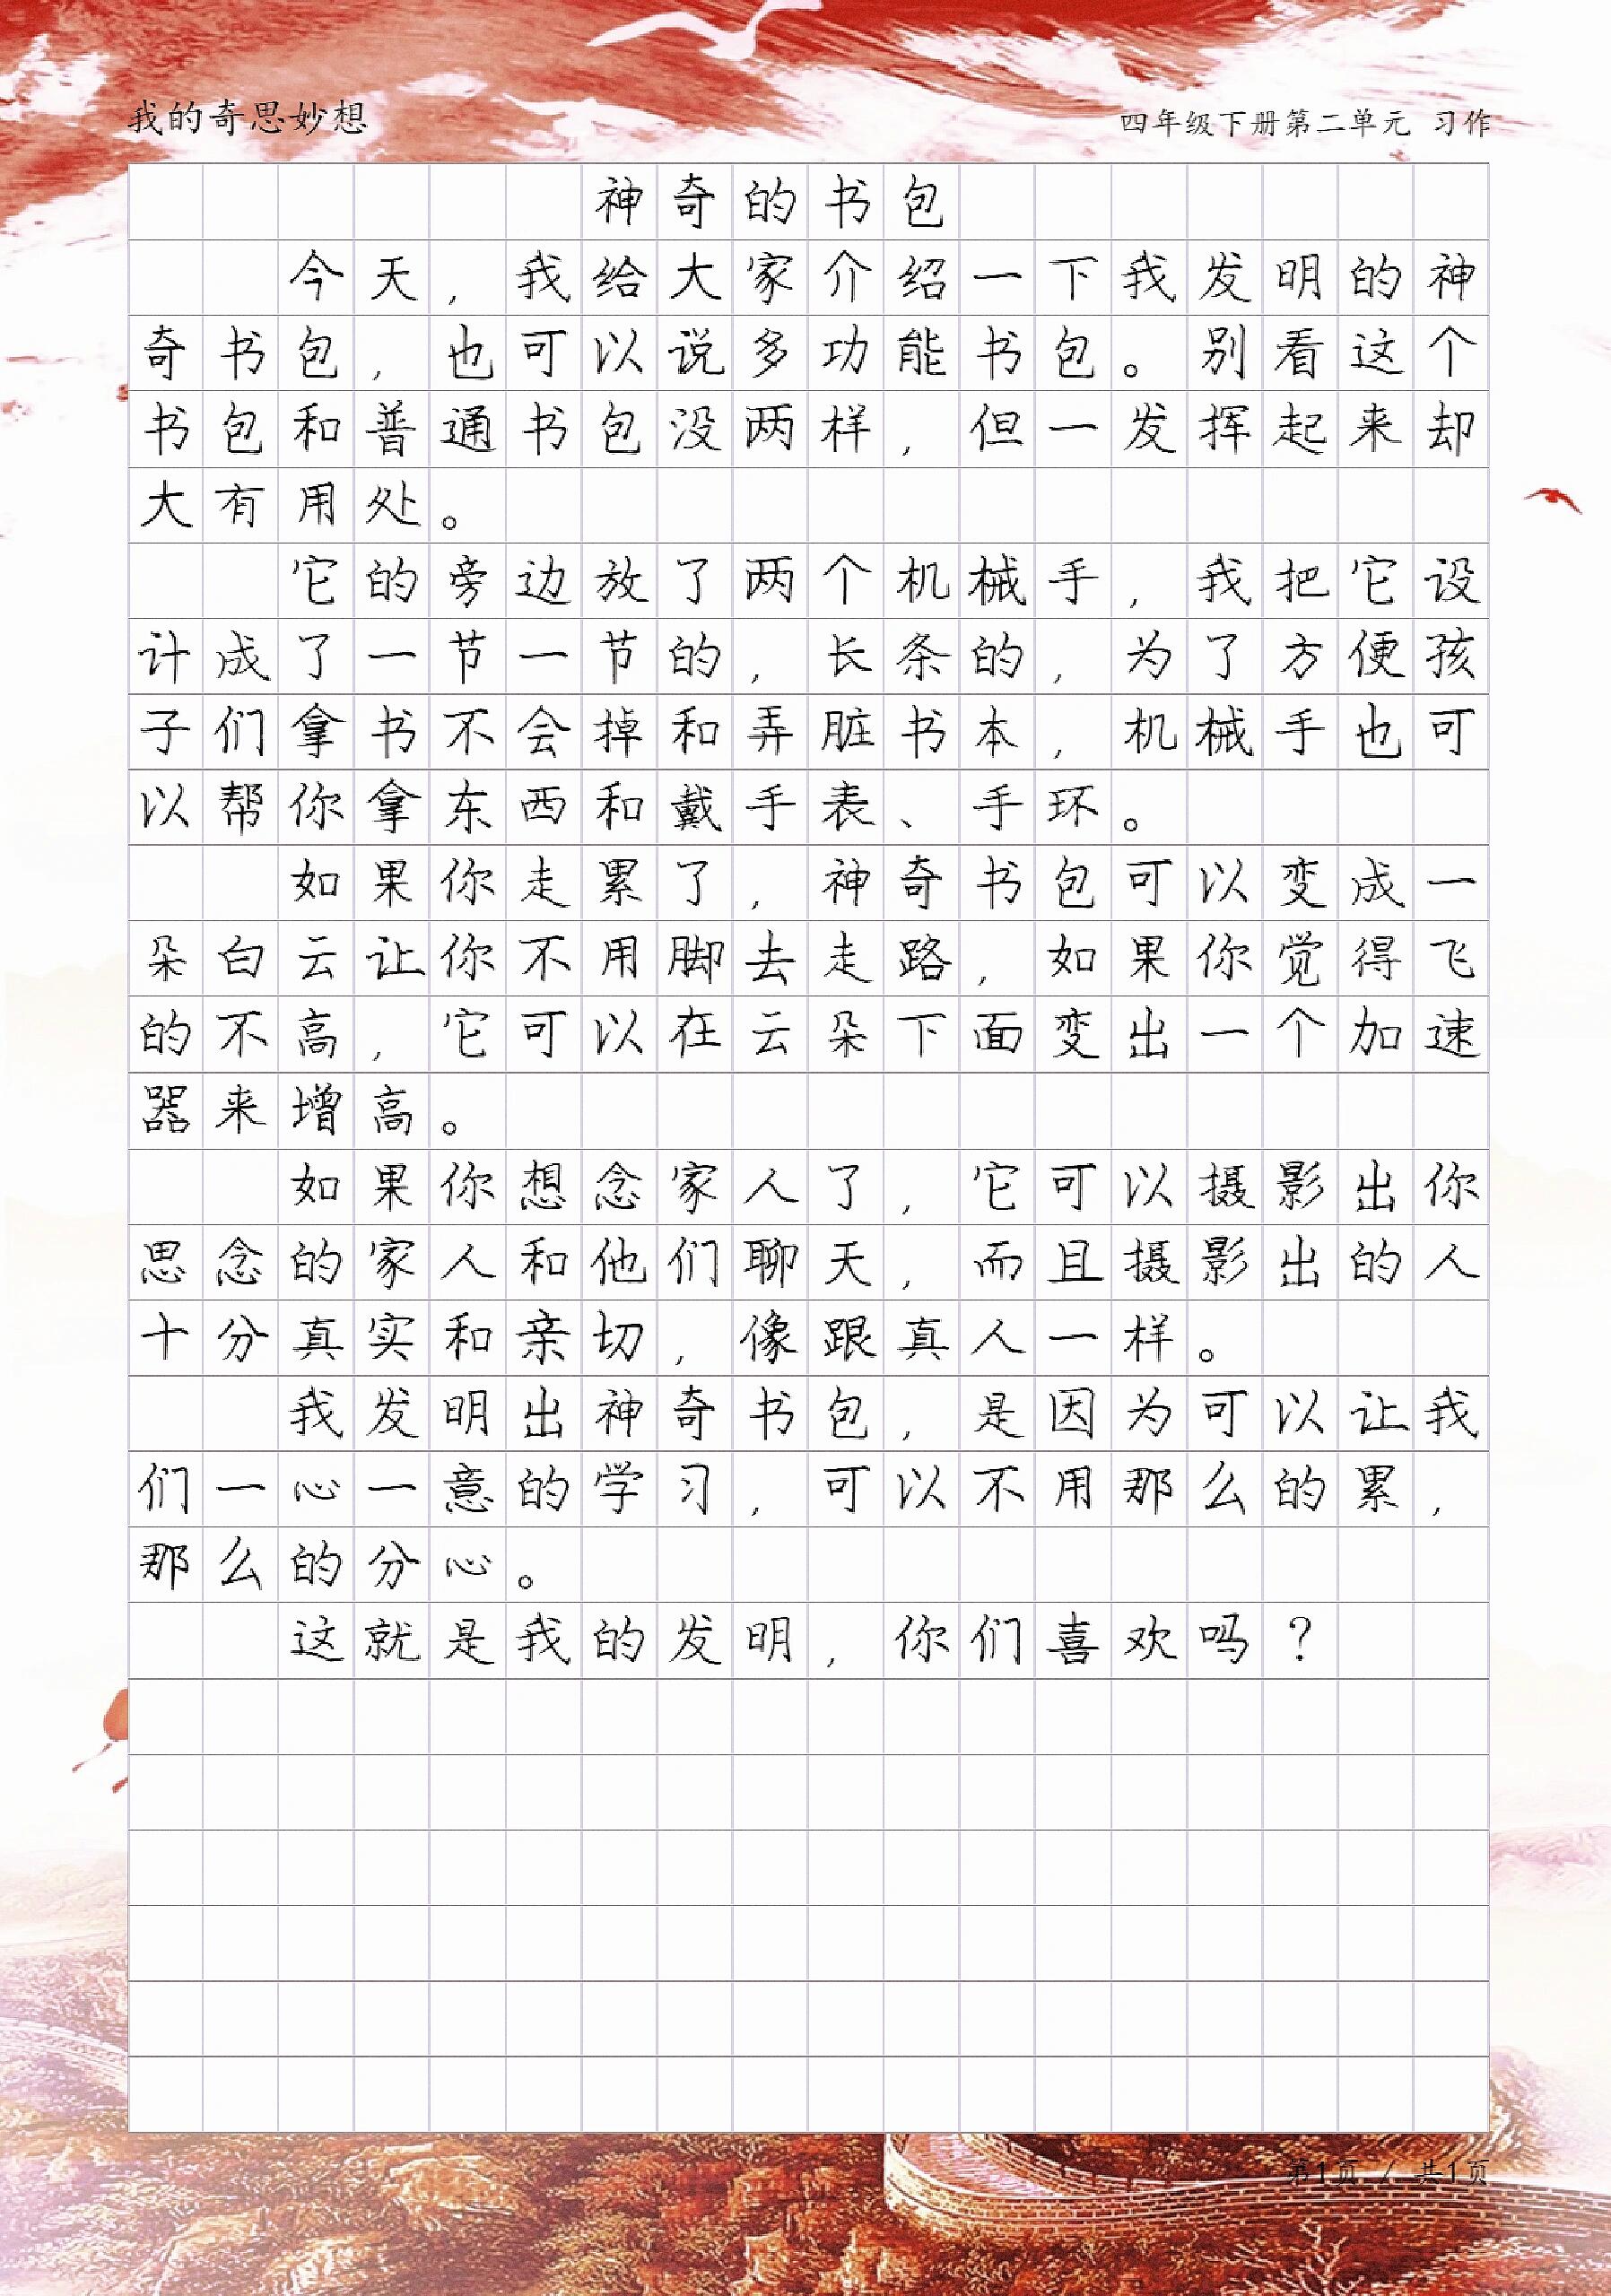 我的奇思妙想
四年级下册第二单元 习作
神奇的书包
今天，我给大家介绍一下我发明的神
奇书包，也可以说多功能书包。别看这个
书包和普通书包没两样，但一发挥起来却
大有用处。
它的旁边放了两个机械手，我把它设
计成了一节一节的，长条的，为了方便孩
子们拿书不会掉和弄脏书本，机械手也可
以帮你拿东西和戴手表、手环。
如果你走累了，神奇书包可以变成一
朵白云让你不用脚去走路，如果你觉得飞
的不高，它可以在云朵下面变出一个加速
器来增高。
如果你想念家人了，它可以摄影出你
思念的家人和他们聊天，而且摄影出的人
十分真实和亲切，像跟真人一样。
我发明出神奇书包，是因为可以让我
们一心一意的学习，可以不用那么的累，
那么的分心。
这就是我的发明，你们喜欢吗？
第1页 / 共1页